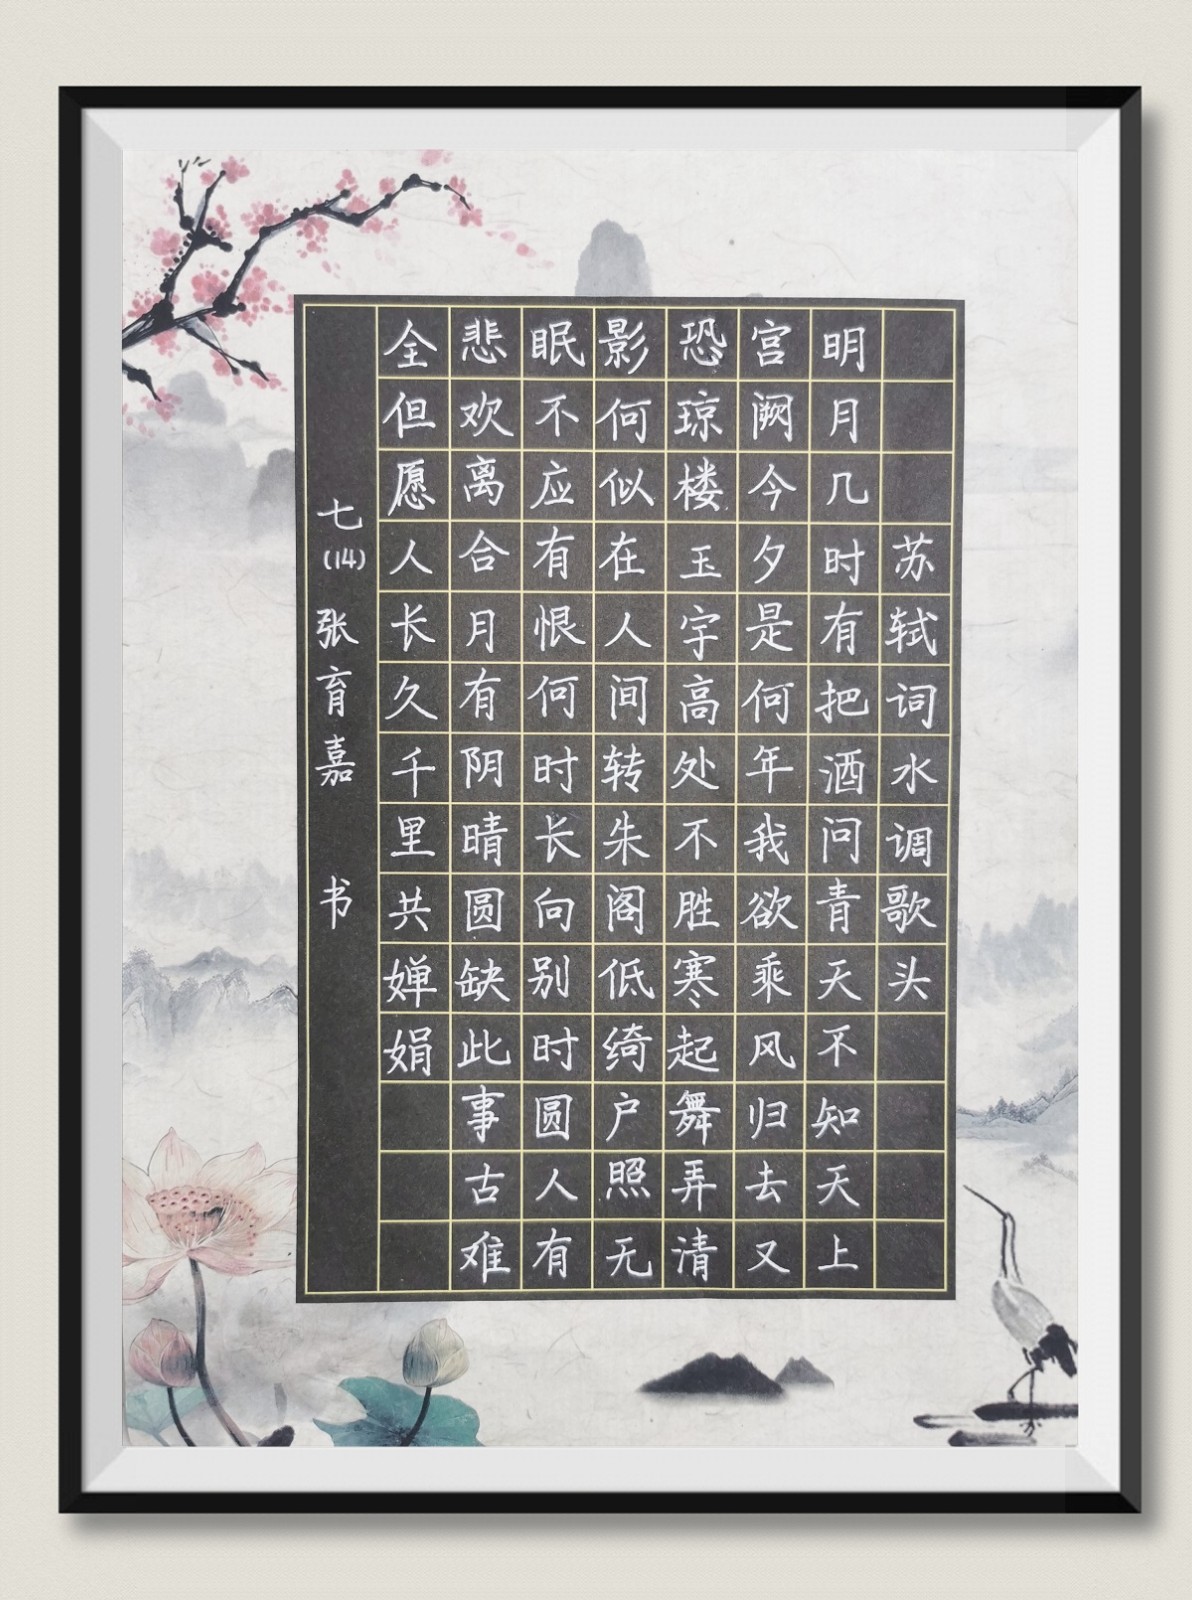 苏轼词水调歌头
明月几时有把酒问青天不知天上
宫阙今夕是何年我欲乘风归去又
恐琼楼玉宇高处不胜寒起舞弄清
影何似在人间转朱阁低绮户照无
眠不应有恨何时长向别时圆人有
悲欢离合月有阴晴圆缺此事古难
全但愿人长久千里共婵娟
七(14) 张育嘉 书